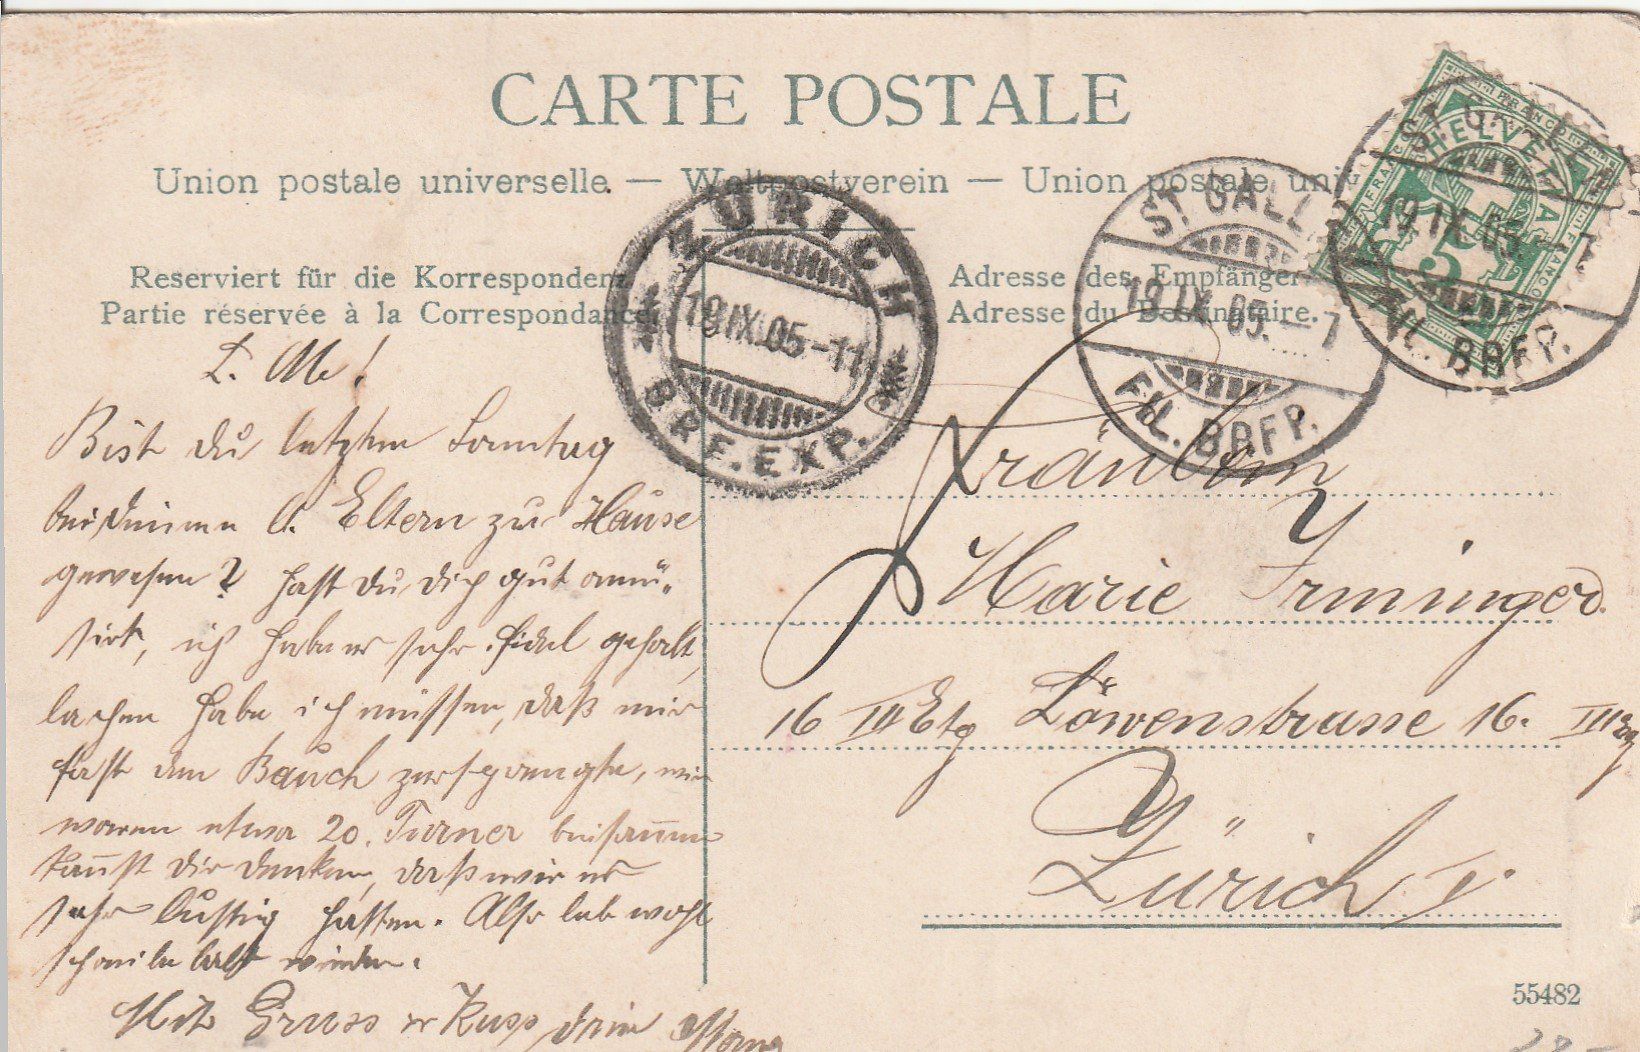 CARTE POSTALE
Union postale universelle. — Weltpostverein — Union postale univ
Reserviert für die Korrespondenz
Partie réservée à la Correspondance
Adresse des Empfänger
Adresse du Destinataire.
ZÜRICH
19.IX.05.-11
BRF.EXP.
ST. GALL
19.IX.05.-7
FIL. BRFP.
ST. GALL
19.IX.05.-7
FIL. BRFP.
HELVETIA
FRANCO
5
L. M!
Bist du letzten Sonntag
bei deinen l. Eltern zu Hause
gewesen? hast du dich gut amü-
sirt, ich habe es sehr fidel gehabt,
lachen habe ich müssen, daß mir
fast den Bauch zersprengte, wir
waren etwa 20. Turner beisammen
kannst dir denken, daß wir es
sehr lustig hatten. Also leb wohl
schreibe bald wieder.
Mit Gruss & Kuss dein
Fräulein
Marie Irminger.
16 III Etg Löwenstrasse 16. III Etg
Zürich I.
55482